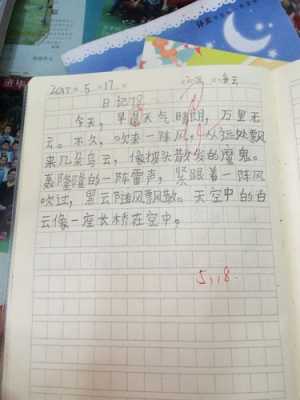 2017.5.17.
日记12
今天，早晨天气晴朗，万里无
云。不久，吹来一阵风，从远处飘
来几朵乌云，像披头散发的魔鬼。
轰隆隆的一阵雷声，紧跟着一阵风
吹过，黑云随风飘散。天空中的白
云像一座长桥在空中。
5,18.